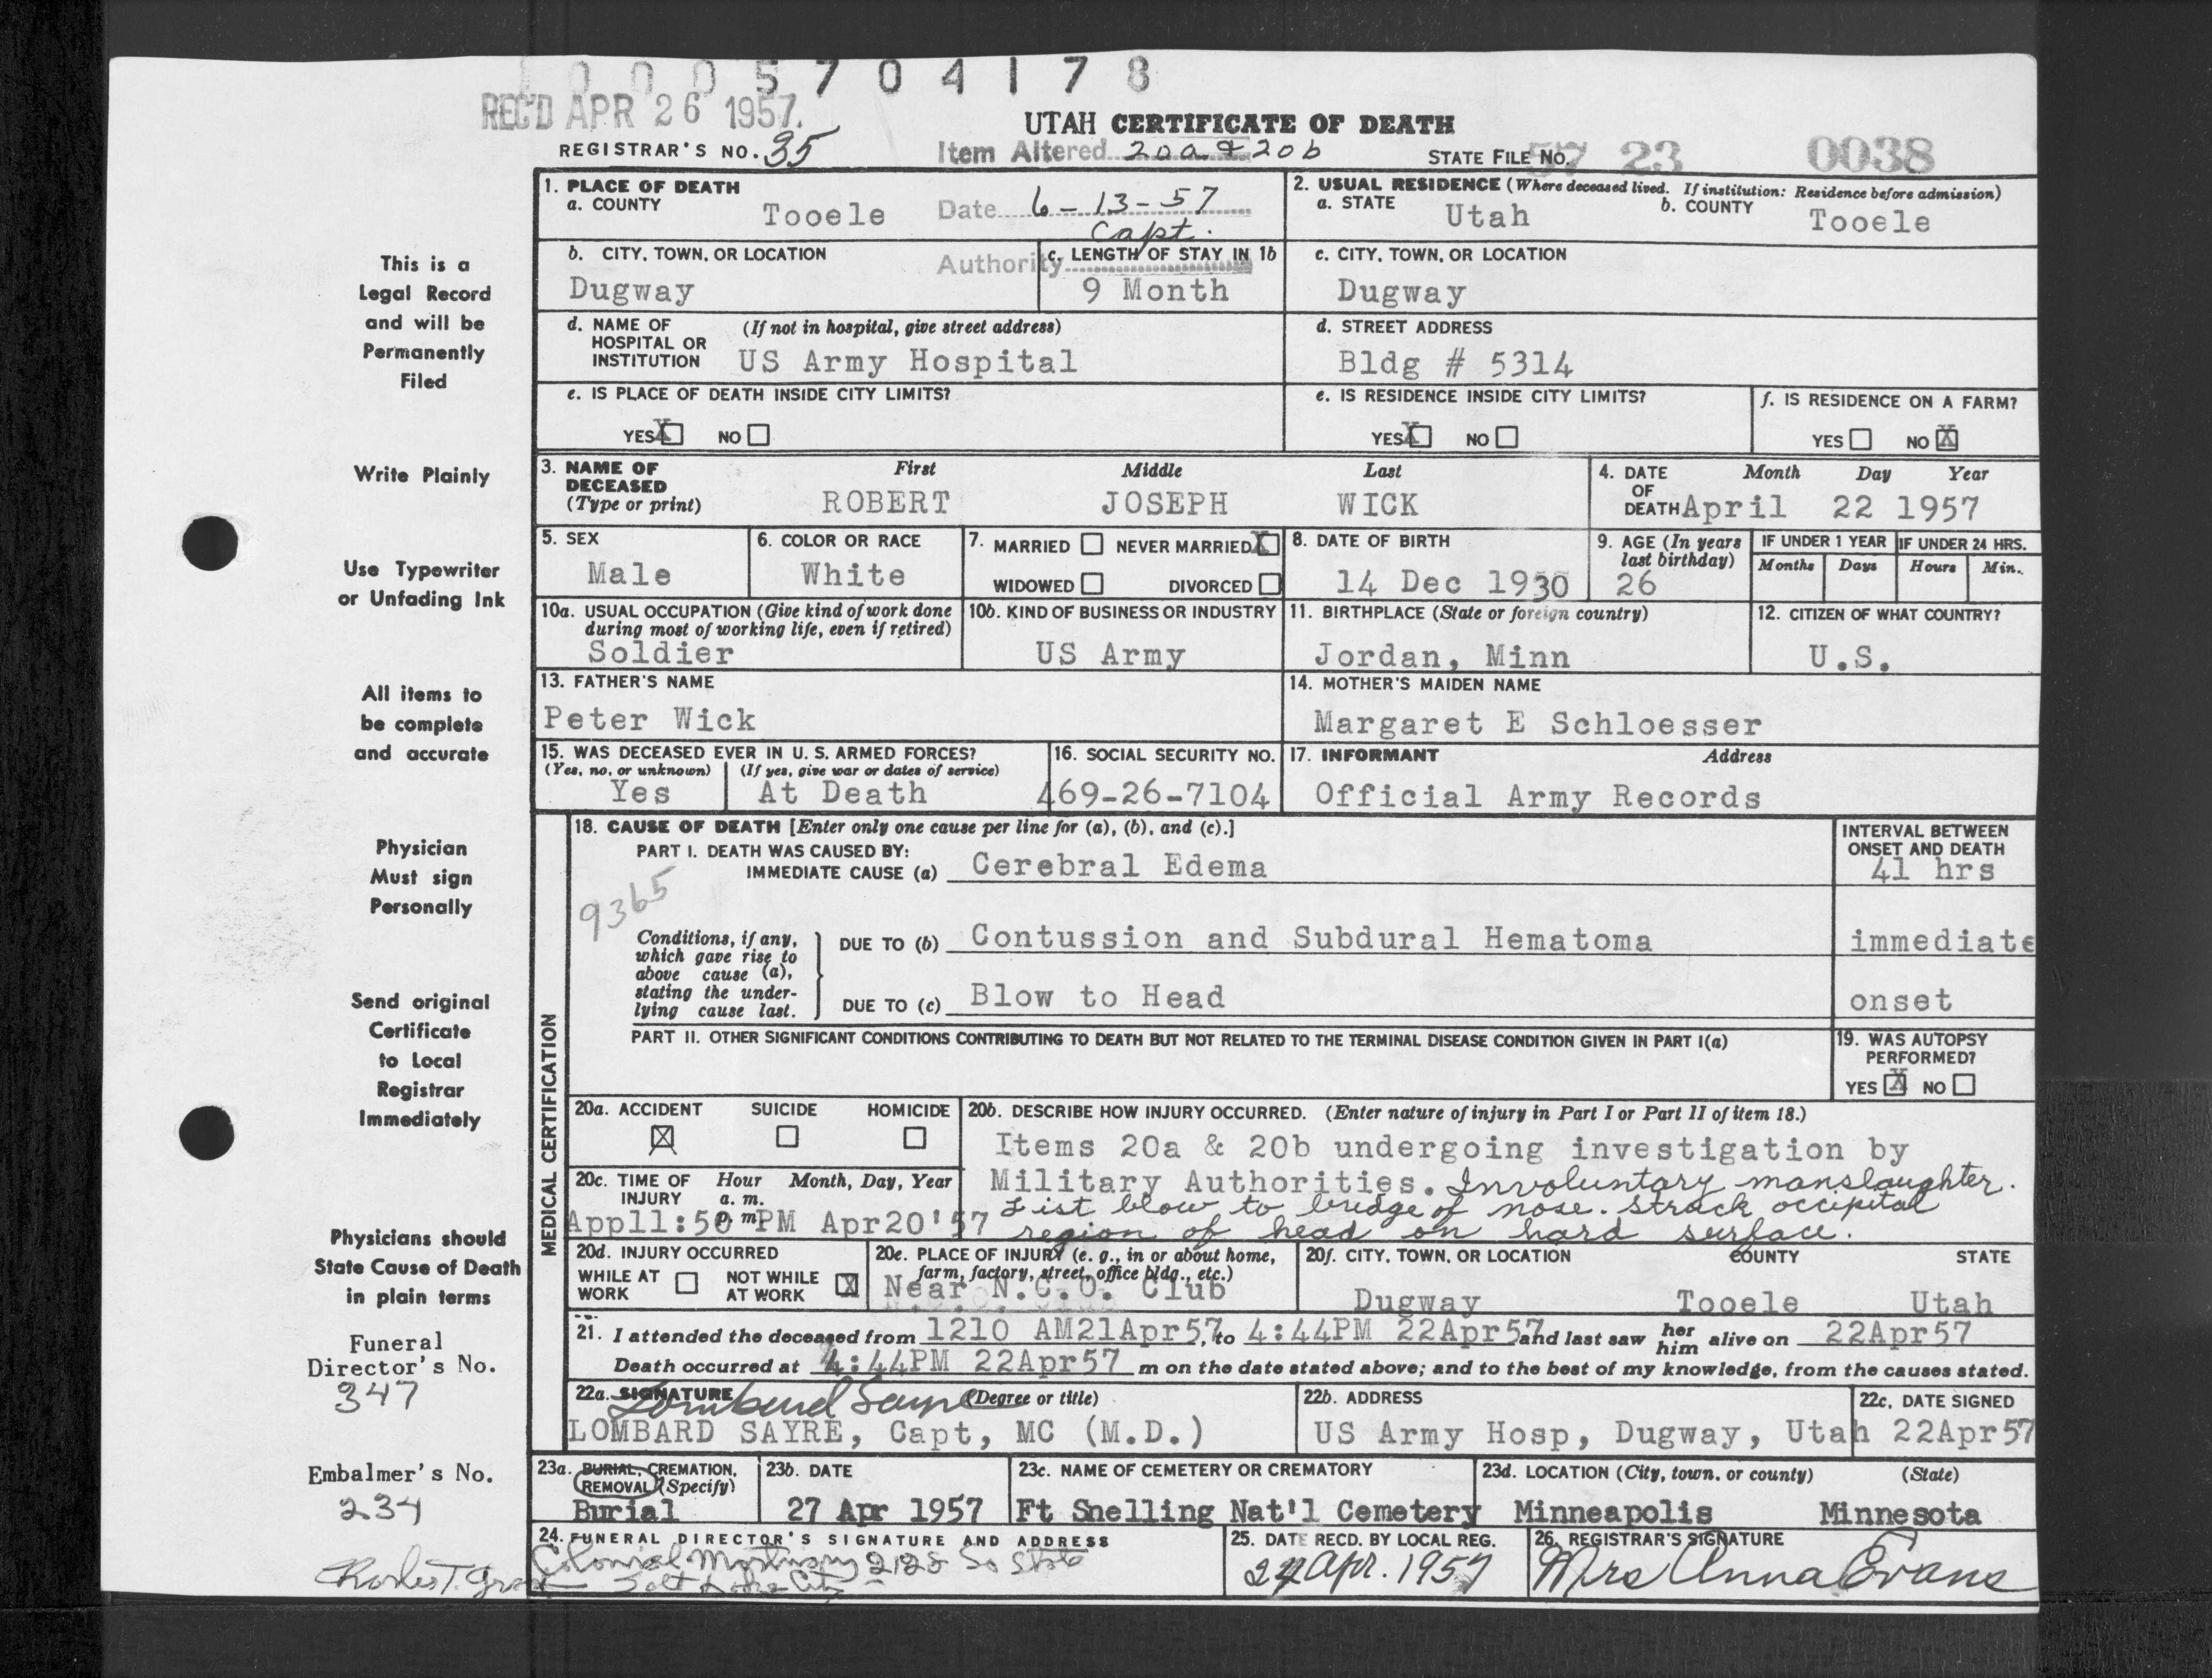 0 0 0 5 7 0 4 1 7 8
REC'D APR 26 1957.
UTAH CERTIFICATE OF DEATH
REGISTRAR'S NO. 35
Item Altered 20a & 20b
STATE FILE NO. 57 23 0038
1. PLACE OF DEATH
a. COUNTY Tooele
Date 6-13-57
Capt.
Authority
2. USUAL RESIDENCE (Where deceased lived. If institution: Residence before admission)
a. STATE Utah b. COUNTY Tooele
b. CITY, TOWN, OR LOCATION
Dugway
c. LENGTH OF STAY IN 1b
9 Month
c. CITY, TOWN, OR LOCATION
Dugway
d. NAME OF HOSPITAL OR INSTITUTION (If not in hospital, give street address)
US Army Hospital
d. STREET ADDRESS
Bldg # 5314
e. IS PLACE OF DEATH INSIDE CITY LIMITS?
YES X NO
e. IS RESIDENCE INSIDE CITY LIMITS?
YES X NO
f. IS RESIDENCE ON A FARM?
YES NO X
3. NAME OF DECEASED (Type or print)
First Middle Last
ROBERT JOSEPH WICK
4. DATE OF DEATH Month Day Year
April 22 1957
5. SEX
Male
6. COLOR OR RACE
White
7. MARRIED NEVER MARRIED X
WIDOWED DIVORCED
8. DATE OF BIRTH
14 Dec 1930
9. AGE (In years last birthday)
26
IF UNDER 1 YEAR IF UNDER 24 HRS.
Months Days Hours Min.
10a. USUAL OCCUPATION (Give kind of work done during most of working life, even if retired)
Soldier
10b. KIND OF BUSINESS OR INDUSTRY
US Army
11. BIRTHPLACE (State or foreign country)
Jordan, Minn
12. CITIZEN OF WHAT COUNTRY?
U.S.
13. FATHER'S NAME
Peter Wick
14. MOTHER'S MAIDEN NAME
Margaret E Schloesser
15. WAS DECEASED EVER IN U. S. ARMED FORCES?
(Yes, no, or unknown) (If yes, give war or dates of service)
Yes At Death
16. SOCIAL SECURITY NO.
469-26-7104
17. INFORMANT Address
Official Army Records
MEDICAL CERTIFICATION
18. CAUSE OF DEATH [Enter only one cause per line for (a), (b), and (c).]
PART I. DEATH WAS CAUSED BY:
IMMEDIATE CAUSE (a) Cerebral Edema
INTERVAL BETWEEN ONSET AND DEATH
41 hrs
9365
Conditions, if any, which gave rise to above cause (a), stating the underlying cause last.
DUE TO (b) Contussion and Subdural Hematoma
immediate
DUE TO (c) Blow to Head
onset
PART II. OTHER SIGNIFICANT CONDITIONS CONTRIBUTING TO DEATH BUT NOT RELATED TO THE TERMINAL DISEASE CONDITION GIVEN IN PART I(a)
19. WAS AUTOPSY PERFORMED?
YES X NO
20a. ACCIDENT SUICIDE HOMICIDE
X
20b. DESCRIBE HOW INJURY OCCURRED. (Enter nature of injury in Part I or Part II of item 18.)
Items 20a & 20b undergoing investigation by
Military Authorities. Involuntary manslaughter.
Fist blow to bridge of nose. Struck occipital
region of head on hard surface.
20c. TIME OF INJURY Hour a. m. p. m. Month, Day, Year
App11:50 PM Apr20'57
20d. INJURY OCCURRED
WHILE AT WORK NOT WHILE AT WORK X
20e. PLACE OF INJURY (e. g., in or about home, farm, factory, street, office bldg., etc.)
Near N.C.O. Club
20f. CITY, TOWN, OR LOCATION COUNTY STATE
Dugway Tooele Utah
21. I attended the deceased from 1210 AM21Apr57, to 4:44PM 22Apr57 and last saw her him alive on 22Apr57
Death occurred at 4:44PM 22Apr57 m on the date stated above; and to the best of my knowledge, from the causes stated.
22a. SIGNATURE (Degree or title)
Lombard Sayre
LOMBARD SAYRE, Capt, MC (M.D.)
22b. ADDRESS
US Army Hosp, Dugway, Utah
22c. DATE SIGNED
22Apr57
23a. BURIAL, CREMATION, REMOVAL (Specify)
Burial
23b. DATE
27 Apr 1957
23c. NAME OF CEMETERY OR CREMATORY
Ft Snelling Nat'l Cemetery
23d. LOCATION (City, town, or county) (State)
Minneapolis Minnesota
24. FUNERAL DIRECTOR'S SIGNATURE AND ADDRESS
Charles T. Colonial Mortuary 2128 So State
Salt Lake City
25. DATE RECD. BY LOCAL REG.
24 Apr. 1957
26. REGISTRAR'S SIGNATURE
Mrs Anna Evans
This is a
Legal Record
and will be
Permanently
Filed
Write Plainly
Use Typewriter
or Unfading Ink
All items to
be complete
and accurate
Physician
Must sign
Personally
Send original
Certificate
to Local
Registrar
Immediately
Physicians should
State Cause of Death
in plain terms
Funeral
Director's No.
347
Embalmer's No.
234